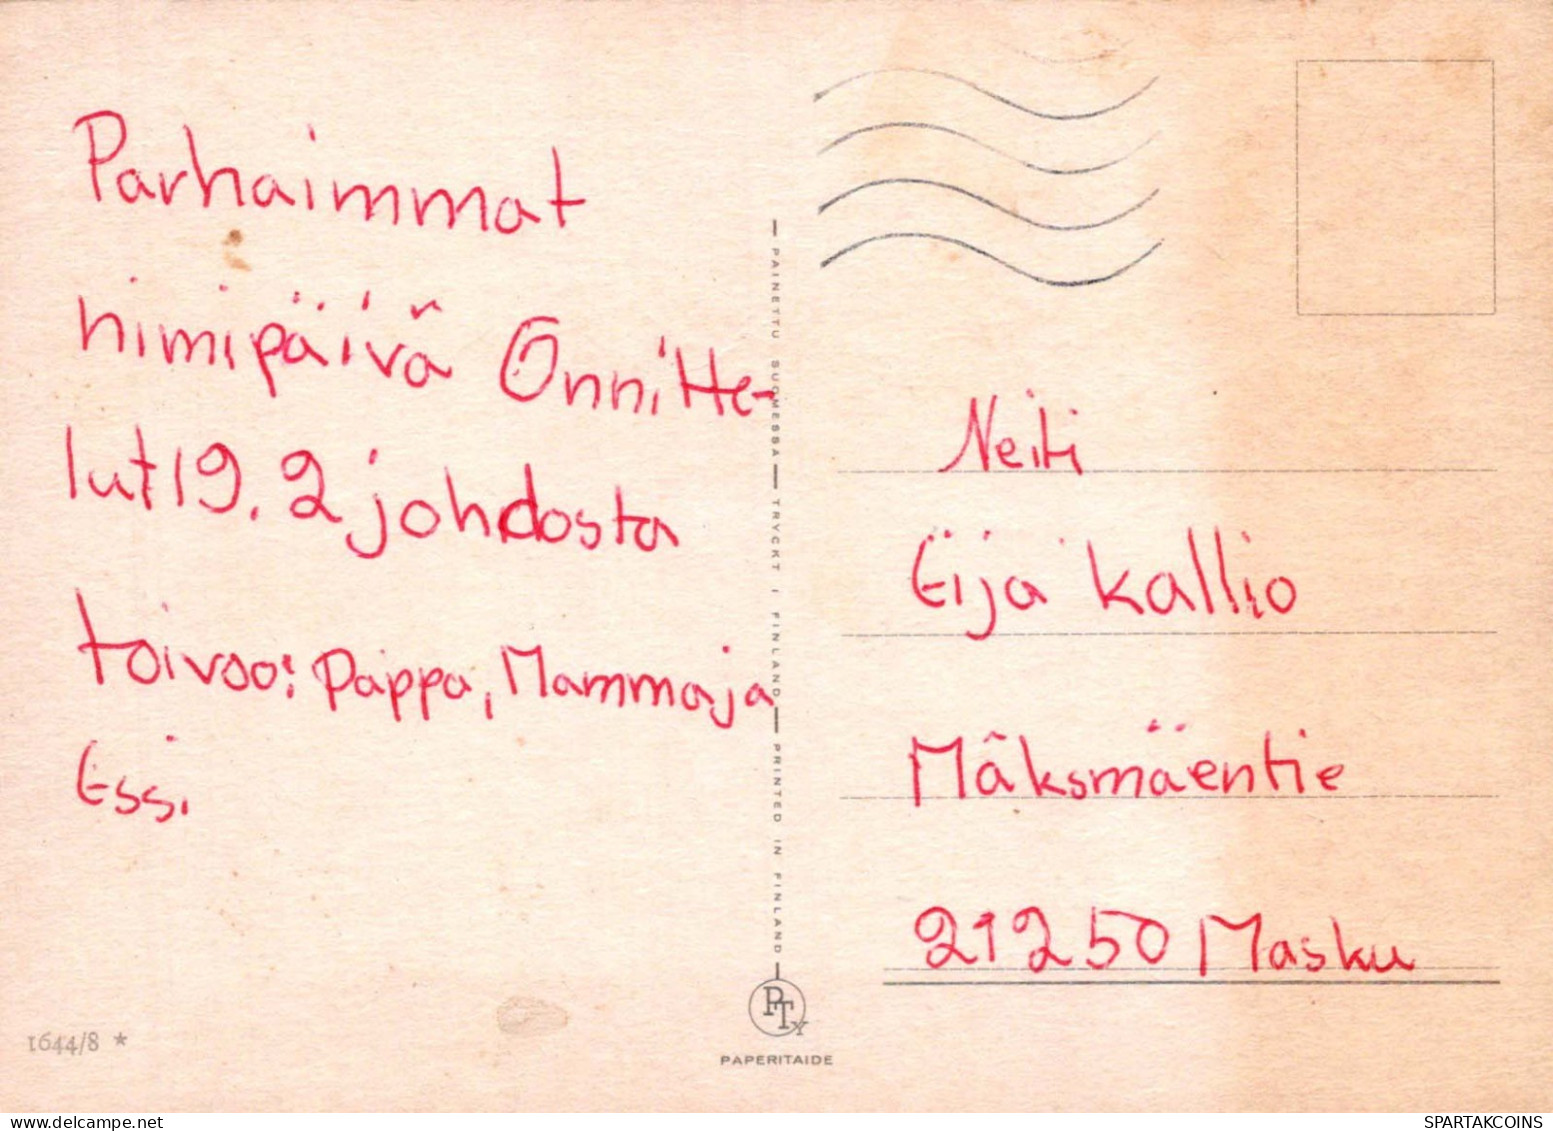 Parhaimmat
nimipäivä Onnitte-
lut 19.2 johdosta
toivoo: Pappa, Mamma ja
Essi.
PAINETTU SUOMESSA — TRYCKT I FINLAND — PRINTED IN FINLAND
Neiti
Eija Kallio
Mäksmäentie
21250 Masku
1644/8 *
PTy
PAPERITAIDE
SPARTAKCOINS
delcampe.net